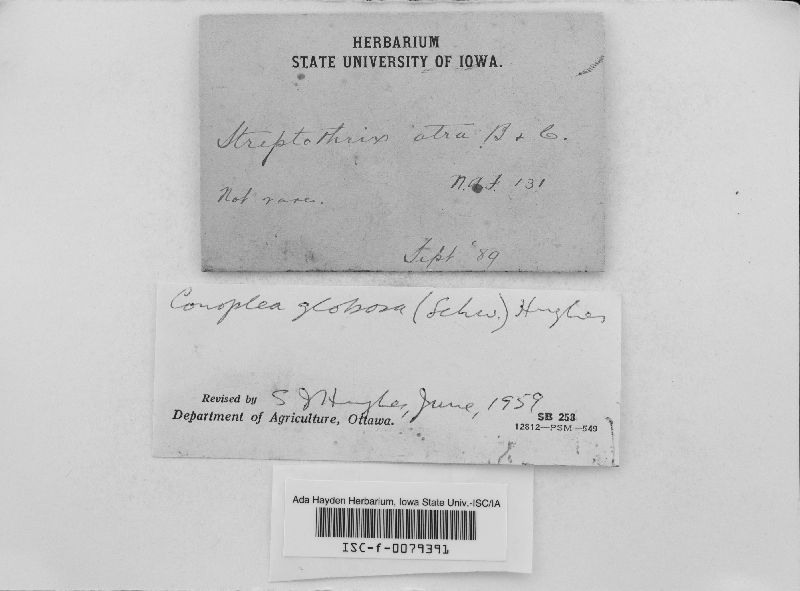 HERBARIUM
STATE UNIVERSITY OF IOWA.
Streptothrix atra B & C.
N.A.F. 131
Not rare.
Sept '89
Conoplea globosa (Schw.) Hughes
Revised by S J Hughes, June, 1959
Department of Agriculture, Ottawa.
SB 253
12812—PSM—549
Ada Hayden Herbarium, Iowa State Univ.-ISC/IA
ISC-f-0079391